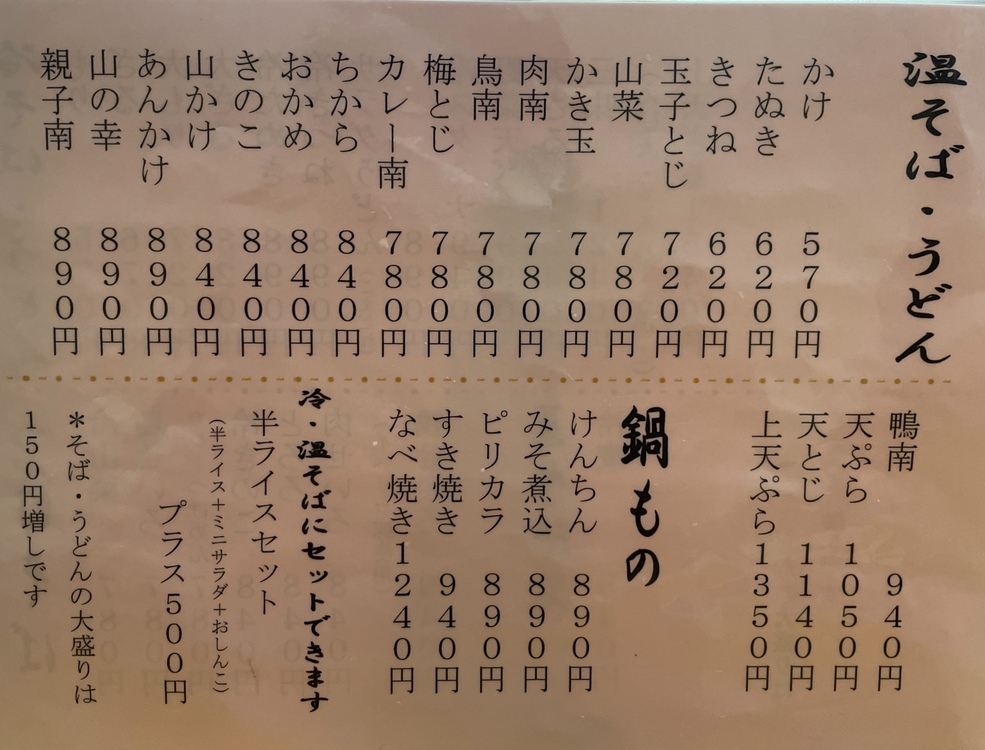 温そば・うどん
かけ 570円
たぬき 620円
きつね 620円
玉子とじ 720円
山菜 780円
かき玉 780円
肉南 780円
鳥南 780円
梅とじ 780円
カレー南 780円
ちから 840円
おかめ 840円
きのこ 840円
山かけ 840円
あんかけ 890円
山の幸 890円
親子南 890円
鴨南 940円
天ぷら 1050円
天とじ 1140円
上天ぷら 1350円
鍋もの
けんちん 890円
みそ煮込 890円
ピリカラ 890円
すき焼き 940円
なべ焼き 1240円
冷・温そばにセットできます
半ライスセット
(半ライス+ミニサラダ+おしんこ)
プラス500円
*そば・うどんの大盛りは
150円増しです